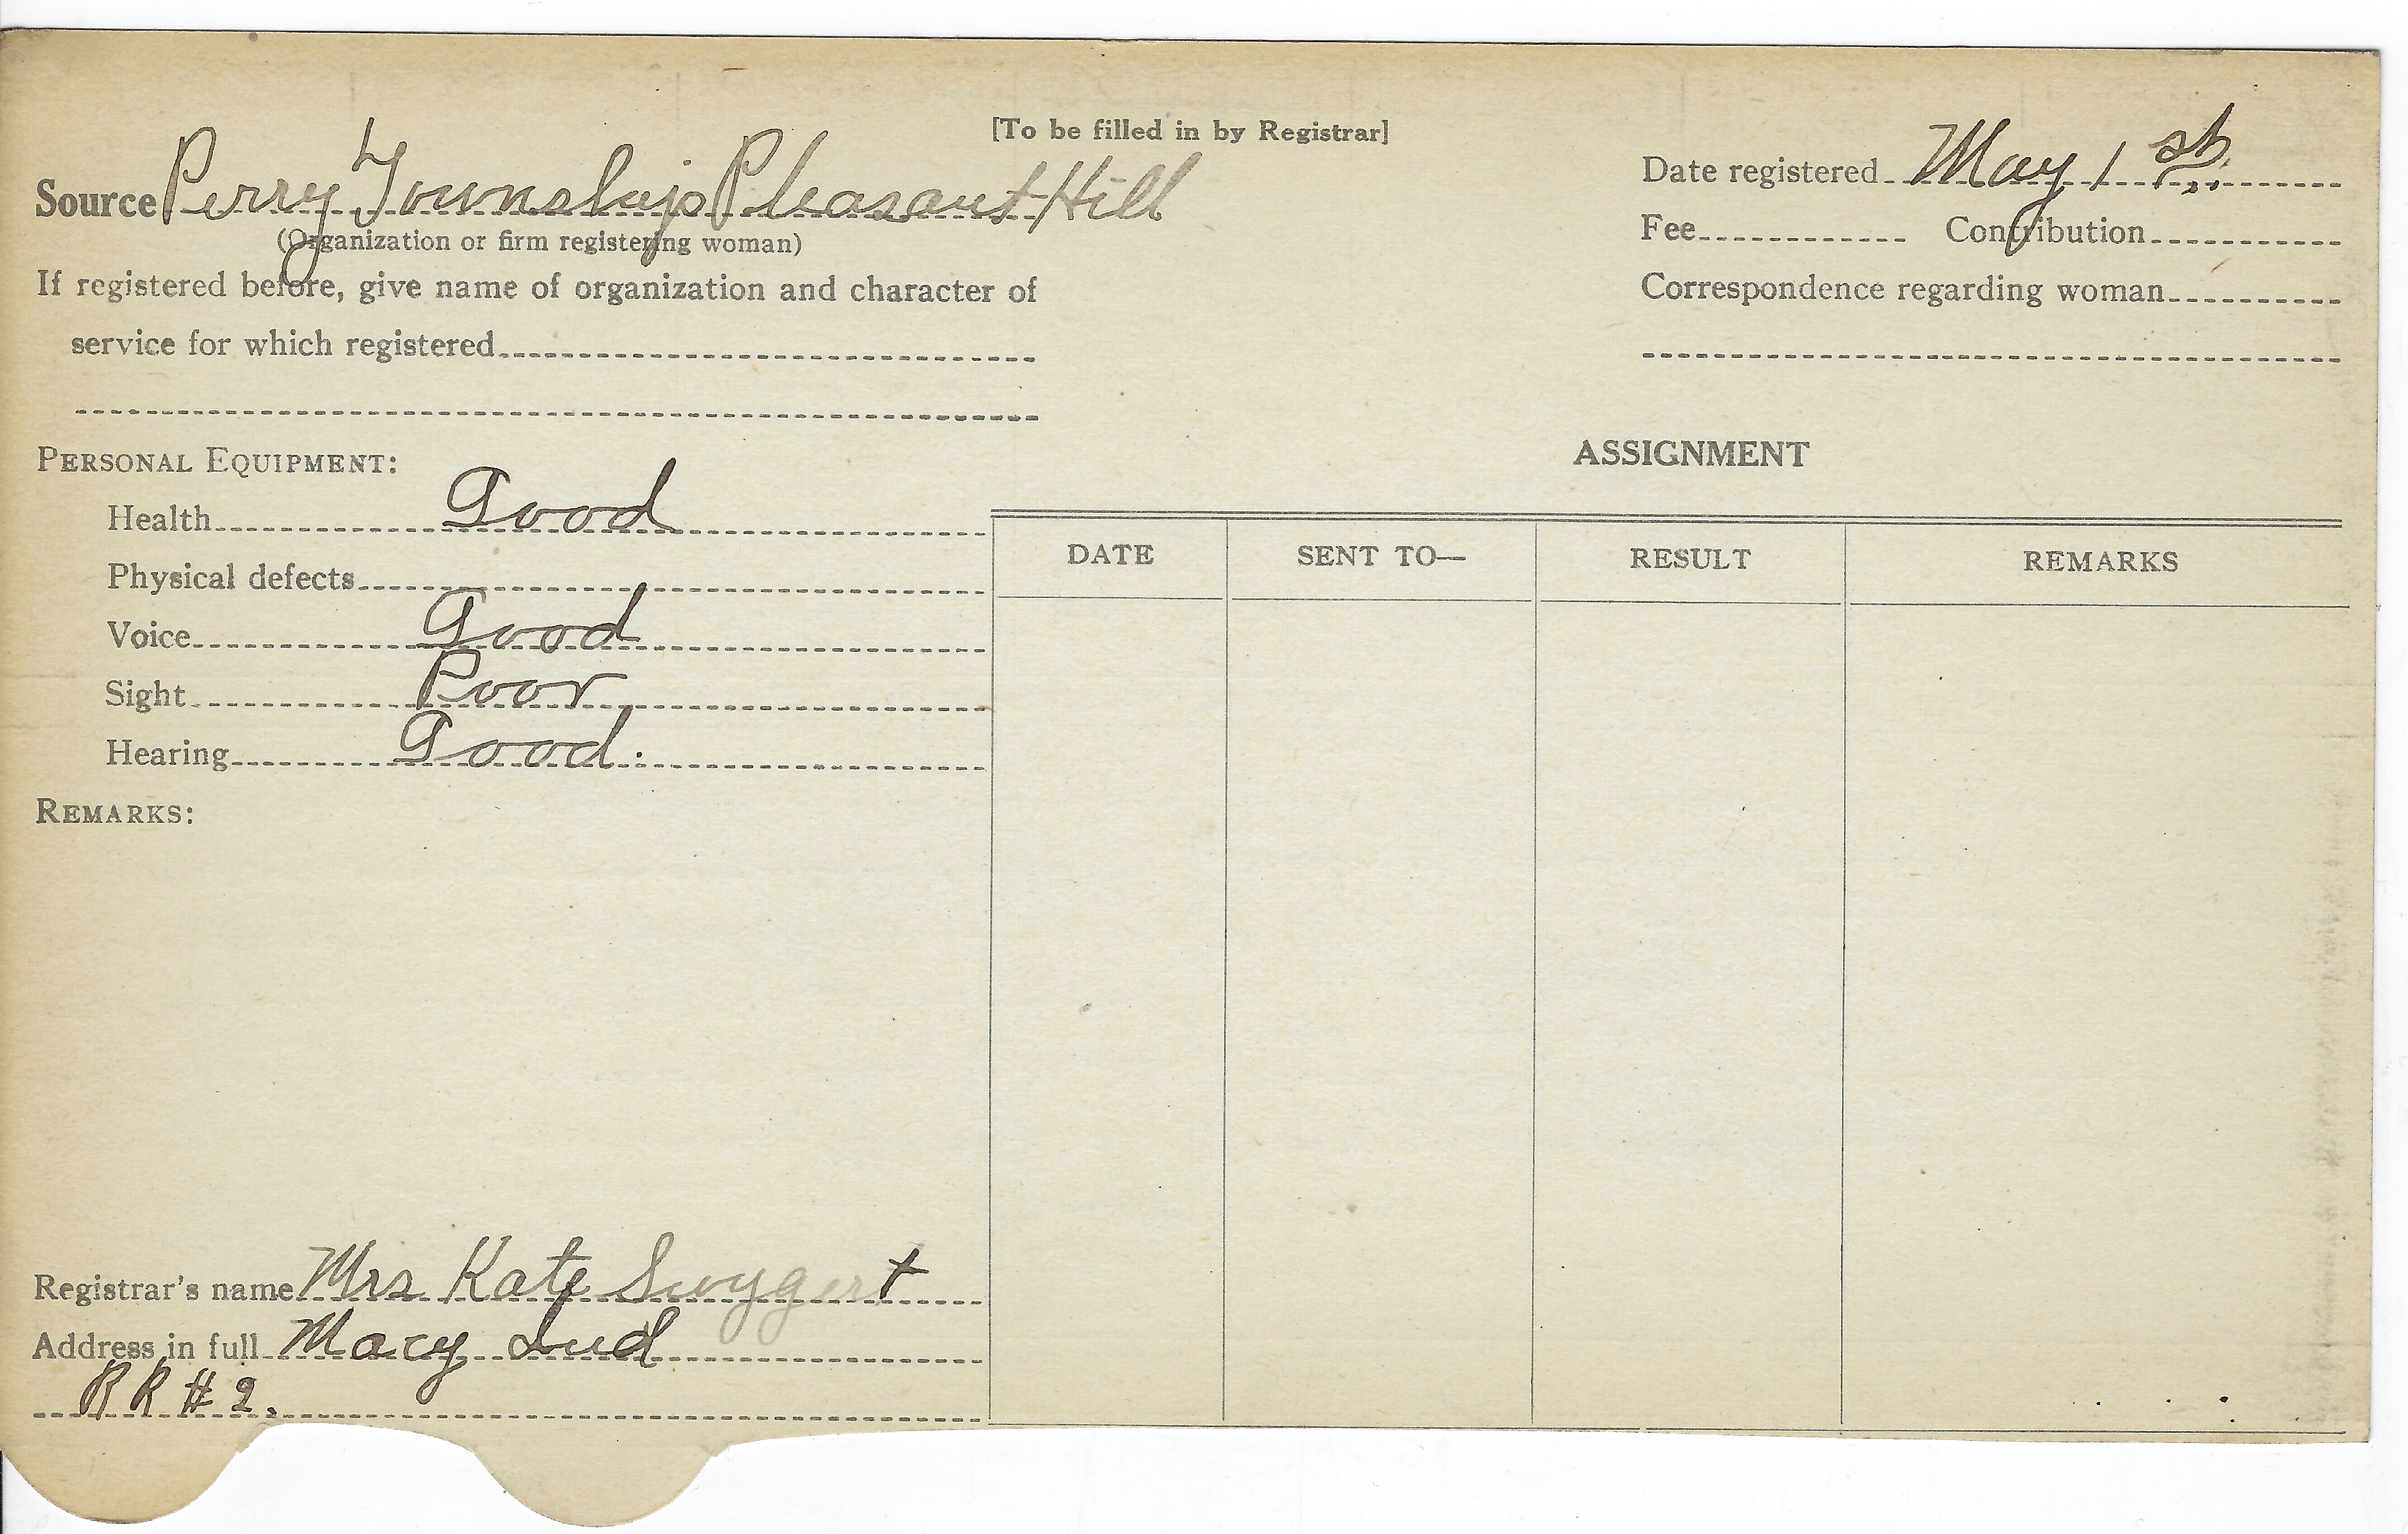 [To be filled in by Registrar]
Source Perry Township Pleasant Hill
(Organization or firm registering woman)
If registered before, give name of organization and character of
service for which registered
Date registered May 1st.
Fee Contribution
Correspondence regarding woman
PERSONAL EQUIPMENT:
Health Good
Physical defects
Voice Good
Sight Poor
Hearing Good.
REMARKS:
Registrar's name Mrs Kate Swygert
Address in full Macy Ind
RR # 2.
ASSIGNMENT
DATE SENT TO— RESULT REMARKS